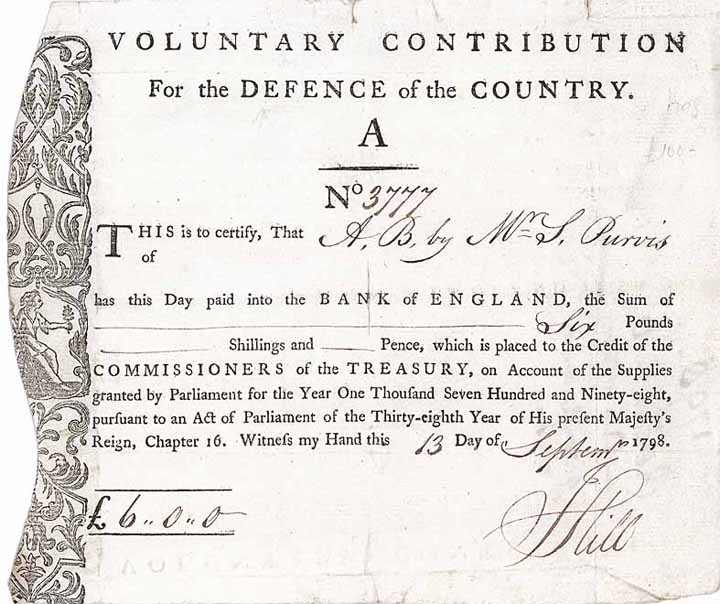 VOLUNTARY CONTRIBUTION
For the DEFENCE of the COUNTRY.
A
No 3777
THIS is to certify, That A. B. by Mr. S. Purvis
of
has this Day paid into the BANK of ENGLAND, the Sum of
Six Pounds
Shillings and Pence, which is placed to the Credit of the
COMMISSIONERS of the TREASURY, on Account of the Supplies
granted by Parliament for the Year One Thouſand Seven Hundred and Ninety-eight,
purſuant to an Act of Parliament of the Thirty-eighth Year of His preſent Majeſty's
Reign, Chapter 16. Witneſs my Hand this 13 Day of Septemr 1798.
£ 6..0..0
Hill